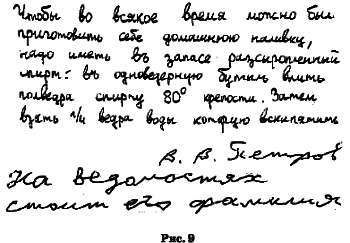 Чтобы во всякое время можно был
приготовить себе домашнюю наливку,
надо иметь въ запасе разсыропленный
спирт: въ одноведерную бутыль влить
полведра спирту 80° крепости. Затем
взять 1/4 ведра воды которую вскипятить
В. В. Петров
На ведомостях
стоит его фамилия
Рис. 9